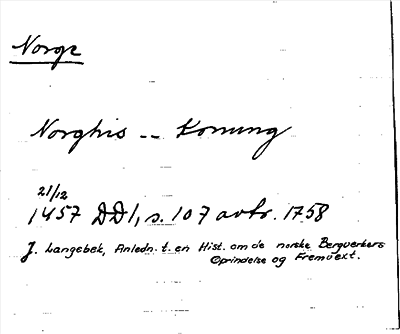 Norge
Norghis -- Konung
21/12
1457 DD1, s. 107 avtr. 1758
J. Langebek, Anledn. t. en Hist. om de norske Bergverkers
Oprindelse og Fremvext.